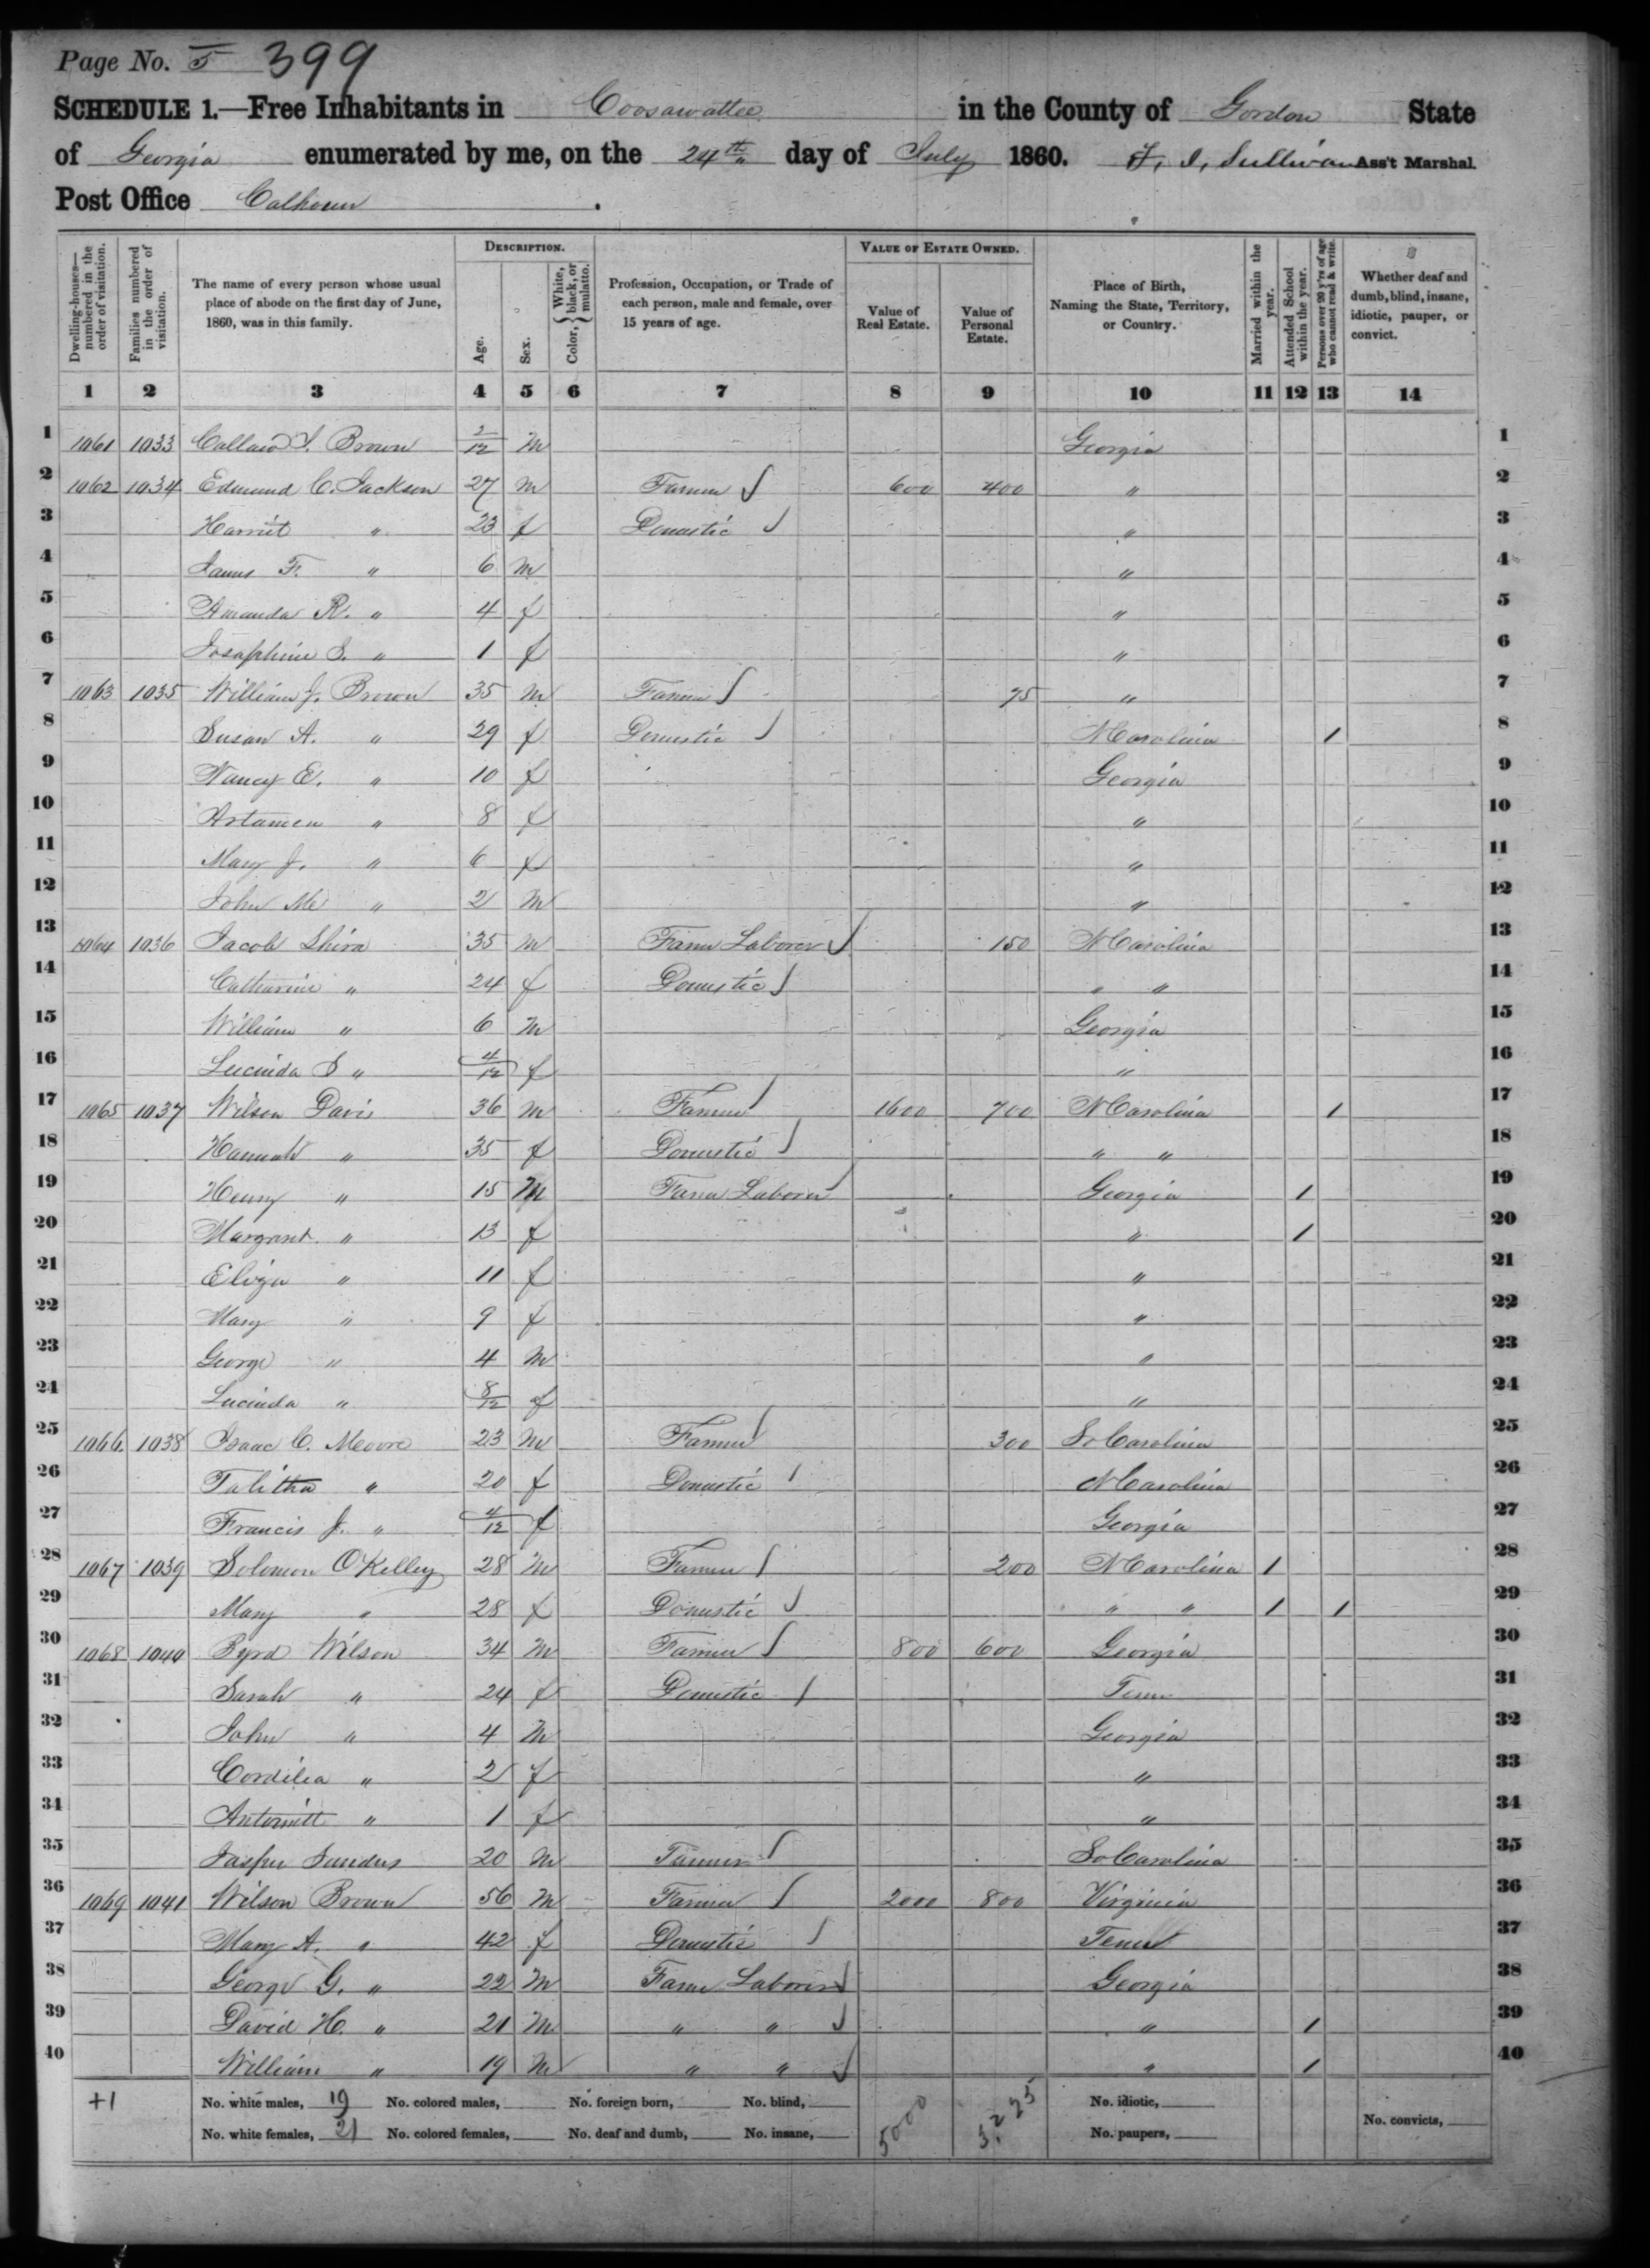 Page No. 5 399
SCHEDULE 1.—Free Inhabitants in Coosawattee in the County of Gordon State
of Georgia enumerated by me, on the 24th day of July 1860. Sullivan Ass't Marshal.
Post Office Calhoun.
Dwelling-houses—numbered in the order of visitation.
Families numbered in the order of visitation.
The name of every person whose usual place of abode on the first day of June, 1860, was in this family.
DESCRIPTION.
Age.
Sex.
Color, { White, black, or mulatto.
Profession, Occupation, or Trade of each person, male and female, over 15 years of age.
VALUE OF ESTATE OWNED.
Value of Real Estate.
Value of Personal Estate.
Place of Birth, Naming the State, Territory, or Country.
Married within the year.
Attended School within the year.
Persons over 20 y'rs of age who cannot read & write.
Whether deaf and dumb, blind, insane, idiotic, pauper, or convict.
1 2 3 4 5 6 7 8 9 10 11 12 13 14
1 1061 1033 Brown 2/12 m Georgia 1
2 1062 1034 Edmund C. Jackson 27 m Farmer 600 400 " 2
3 Harriet " 23 f Domestic " 3
4 James F. " 6 m " 4
5 Amanda R. " 4 f " 5
6 Josephine S. " 1 f " 6
7 1063 1035 William J. Brown 35 m Farmer 75 " 7
8 Susan A. " 29 f Domestic N Carolina / 8
9 Nancy E. " 10 f Georgia 9
10 " 8 f " 10
11 Mary J. " 6 f " 11
12 John Mc " 2 m " 12
13 1064 1036 Jacob Shira 35 m Farm Laborer 150 N Carolina 13
14 Catharine " 24 f Domestic " " 14
15 William " 6 m Georgia 15
16 Lucinda S " 4/12 f " 16
17 1065 1037 Wilson Davis 36 m Farmer 1600 700 N Carolina / 17
18 Hannah " 35 f Domestic " " 18
19 Henry " 15 m Farm Laborer Georgia / 19
20 Margaret " 13 f " / 20
21 Eliza " 11 f " 21
22 Mary " 9 f " 22
23 George " 4 m " 23
24 Lucinda " 8/12 f " 24
25 1066 1038 Isaac C. Moore 23 m Farmer 300 So Carolina 25
26 Talitha " 20 f Domestic N Carolina 26
27 Francis J. " 4/12 f Georgia 27
28 1067 1039 Solomon O'Kelley 28 m Farmer 200 N Carolina / 28
29 Mary " 28 f Domestic " " / / 29
30 1068 1040 Byrd Wilson 34 m Farmer 800 600 Georgia 30
31 Sarah " 24 f Domestic Tenn 31
32 John " 4 m Georgia 32
33 Cordelia " 2 f " 33
34 Antoinett " 1 f " 34
35 Jasper Sanders 20 m Farmer So Carolina 35
36 1069 1041 Wilson Brown 56 m Farmer 2000 800 Virginia 36
37 Mary A. " 42 f Domestic Tenn 37
38 George G. " 22 m Farm Laborer Georgia 38
39 David H. " 21 m " " " / 39
40 William " 19 m " " " / 40
+1 No. white males, 19 No. colored males, No. foreign born, No. blind, 5000 3,225 No. idiotic, No. convicts,
No. white females, 21 No. colored females, No. deaf and dumb, No. insane, No. paupers,